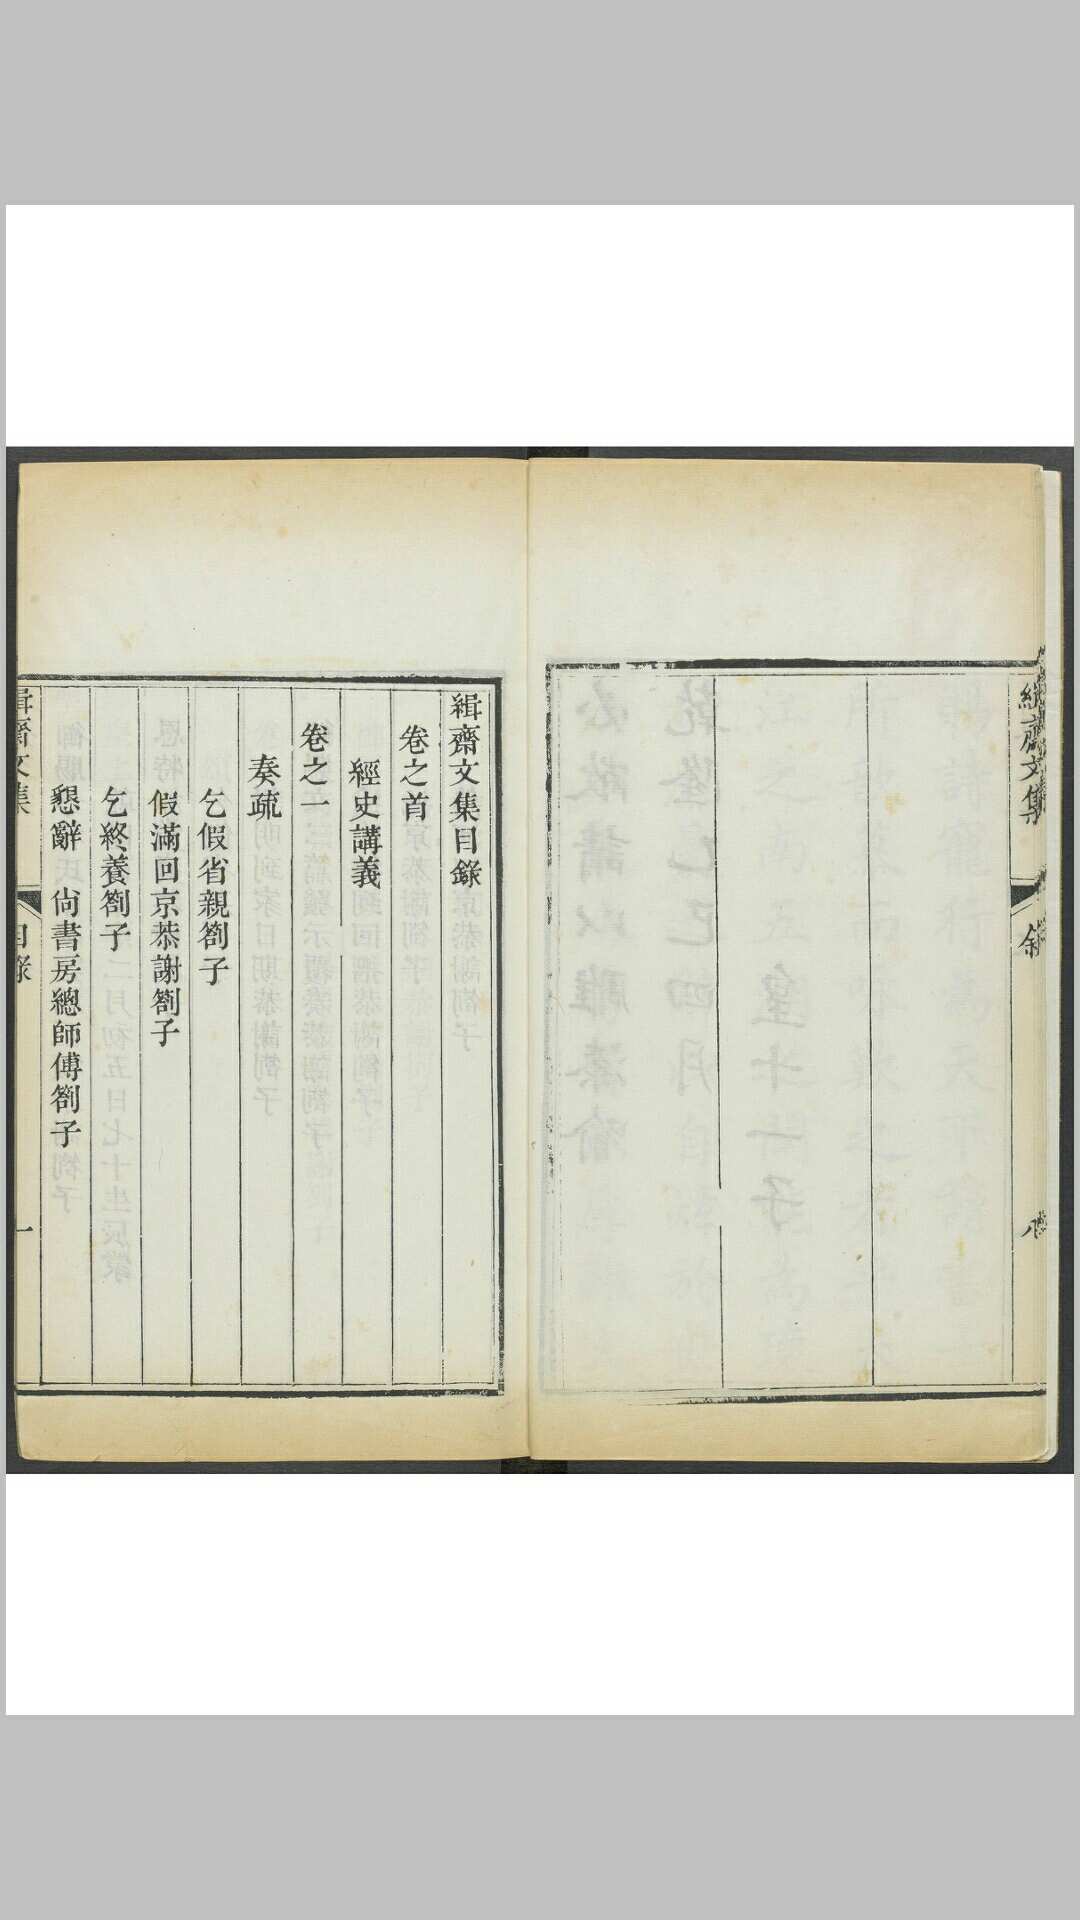 緝齋文集
敘
八
緝齋文集目錄
卷之首
經史講義
卷之一
奏疏
乞假省親劄子
假滿回京恭謝劄子
乞終養劄子
懇辭尙書房總師傅劄子
緝齋文集
目錄
一